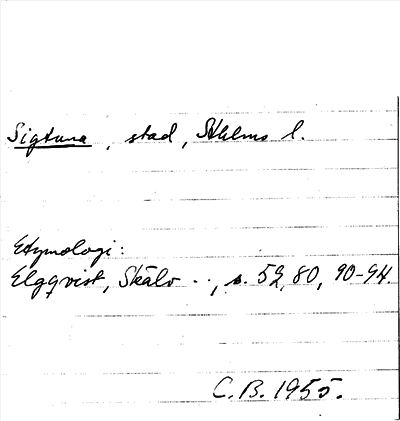 Sigtuna, stad, Sthlms l.
Etymologi:
Elgqvist, Skälv .., s. 52, 80, 90-94.
C.B. 1955.